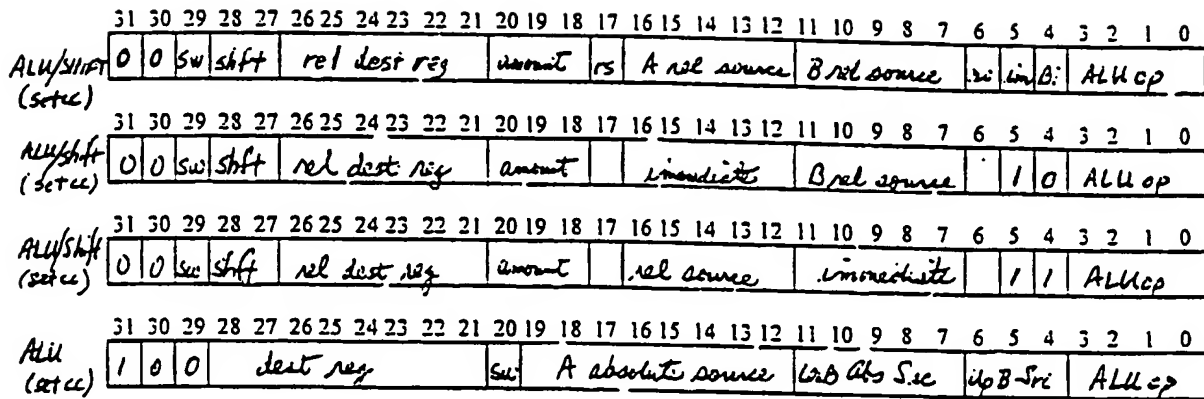 31 30 29 28 27 26 25 24 23 22 21 20 19 18 17 16 15 14 13 12 11 10 9 8 7 6 5 4 3 2 1 0
ALU/SHIFT 0 0 sw shft rel dest reg amount rs A rel source B rel source im Bi ALU op
(setcc)
31 30 29 28 27 26 25 24 23 22 21 20 19 18 17 16 15 14 13 12 11 10 9 8 7 6 5 4 3 2 1 0
ALU/shft 0 0 sw shft rel dest reg amount immediate B rel source 1 0 ALU op
(setcc)
31 30 29 28 27 26 25 24 23 22 21 20 19 18 17 16 15 14 13 12 11 10 9 8 7 6 5 4 3 2 1 0
ALU/Shift 0 0 sw shft rel dest reg amount rel source immediate 1 1 ALU op
(setcc)
31 30 29 28 27 26 25 24 23 22 21 20 19 18 17 16 15 14 13 12 11 10 9 8 7 6 5 4 3 2 1 0
ALU 1 0 0 dest reg sw A absolute source Abs B ALU op
(setcc)